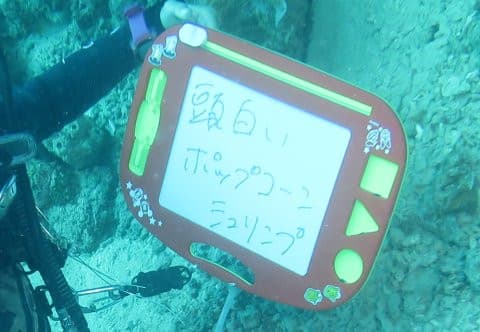 頭白い
ポップコーン
シュリンプ